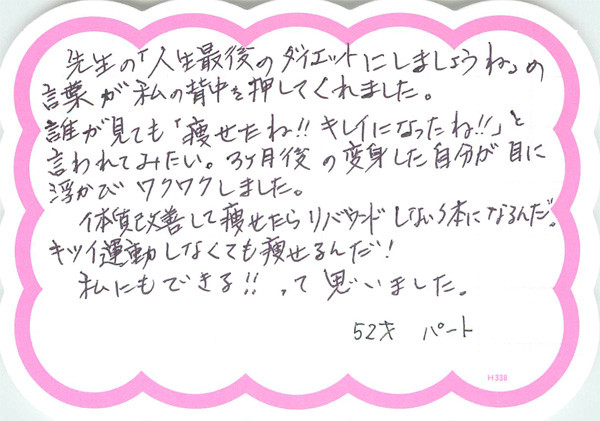 先生の「人生最後のダイエットにしましょうね」の
言葉が私の背中を押してくれました。
誰が見ても「痩せたね!!キレイになったね!!」と
言われてみたい。3ヶ月後の変身した自分が目に
浮かびワクワクしました。
体質改善して痩せたらリバウンドしない体になるんだ。
キツイ運動しなくても痩せるんだ!
私にもできる!!って思いました。
52才 パート
H338